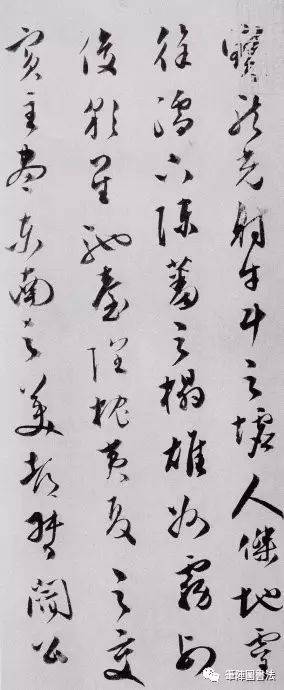 寶龍光射牛斗之墟人傑地靈
徐孺下陳蕃之榻雄州霧列
俊彩星馳臺隍枕夷夏之交
賓主盡東南之美都督閻公
筆陣圖書法